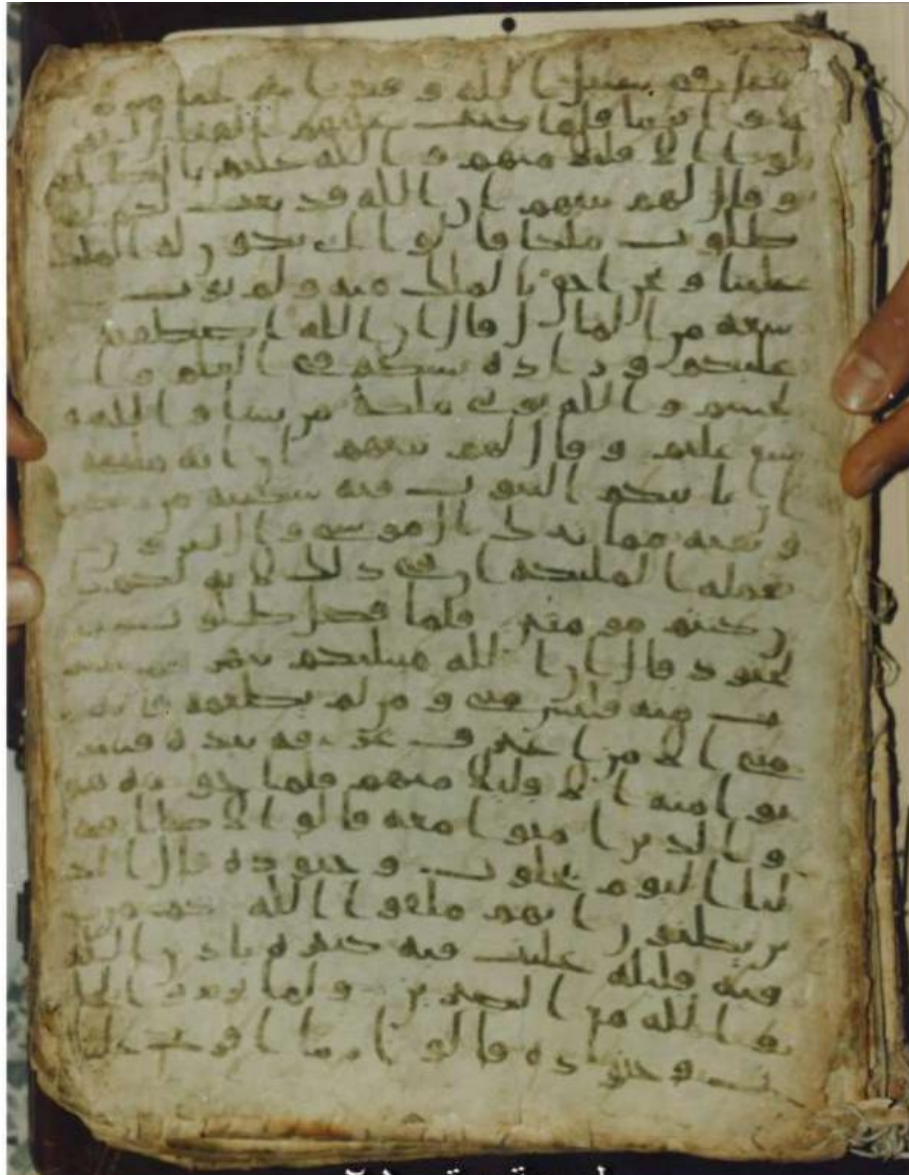 في سبيل الله وقد
و ابنينا فلما كتب عليهم القتال تو
لوا الا قليلا منهم و الله عليم بالظلمين
و قال لهم نبيهم ان الله قد بعث لكم
طلوت ملكا قالوا انى يكون له الملك
علينا و نحن احق بالملك منه و لم يوت
سعه من المال قال ان الله اصطفيه
عليكم و زاده بسطه في العلم و ا
لجسم و الله يوتي ملكه من يشا و الله و
سع عليم و قال لهم نبيهم ان ايه ملكه
ان ياتيكم التبوت فيه سكينه من
و بقيه مما ترك ال موسى و ال هرون
تحمله الملئكه ان في ذلك لايه لكم ا
ن كنتم مومنين فلما فصل طلوت
لجنود قال ان الله مبتليكم بنهر
ب منه فليس مني و من لم يطعمه فانه
مني الا من اغترف غرفه بيده فشر
بوا منه الا قليلا منهم فلما جوزه هو
و الذين امنوا معه قالوا لا طاقه
لنا اليوم بجلوت و جنوده قال الذ
ين يظنون انهم ملقوا الله كم من
فيه قليله غلبت فيه كثيره باذن الله
و الله مع الصبرين و لما برزوا لجلو
ت و جنوده قالوا ربنا افرغ علينا